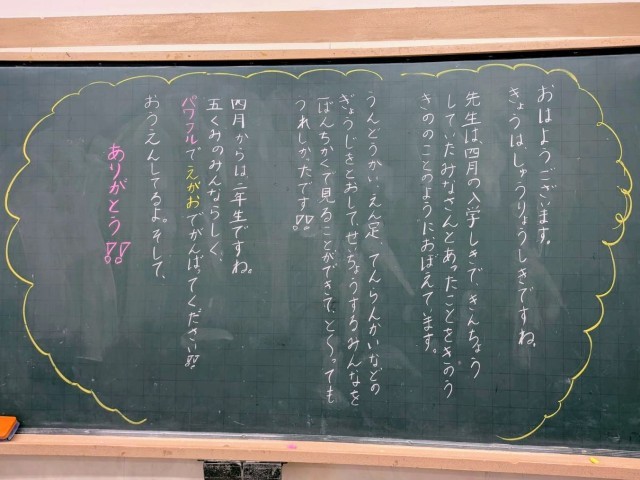 おはようございます。
きょうは、しゅうりょうしきですね。
先生は、四月の入学しきで、きんちょう
していたみなさんとあったことをきのう
きののことのようにおぼえています。
うんどうかい、えん足、てんらんかいなどの
ぎょうじをとおして、せいちょうするみんなを
一ばんちかくで見ることができて、と〜っても
うれしかったです!!
四月からは、二年生ですね。
五くみのみんならしく、
パワフルで えがおでがんばってください!!
おうえんしてるよ。そして、
ありがとう!!